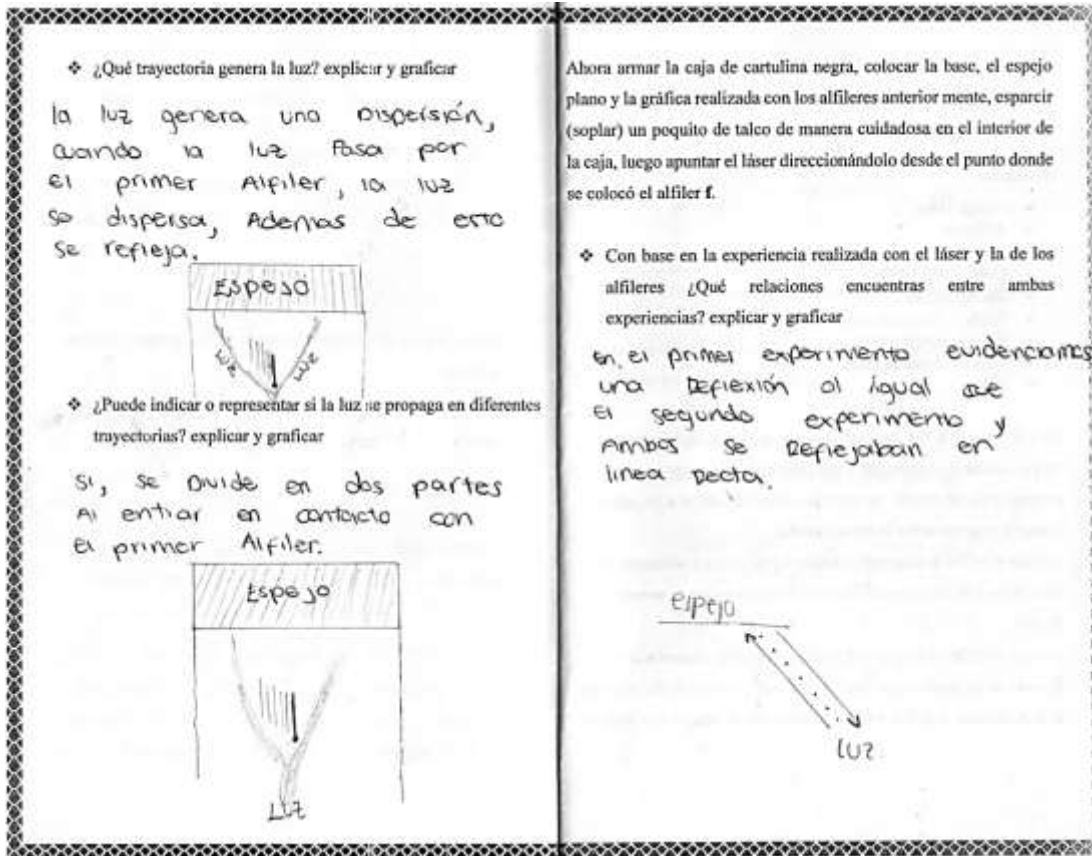 ❖ ¿Qué trayectoria genera la luz? explicar y graficar
la luz genera una Dispersión,
cuando la luz Pasa por
el primer Alfiler, la luz
se dispersa, Ademas de esto
se refleja.
Espejo
Luz
Luz
❖ ¿Puede indicar o representar si la luz se propaga en diferentes
trayectorias? explicar y graficar
Si, se Divide en dos partes
Al entrar en contacto con
el primer Alfiler.
Espejo
LUZ
Ahora armar la caja de cartulina negra, colocar la base, el espejo
plano y la gráfica realizada con los alfileres anterior mente, esparcir
(soplar) un poquito de talco de manera cuidadosa en el interior de
la caja, luego apuntar el láser direccionándolo desde el punto donde
se colocó el alfiler f.
❖ Con base en la experiencia realizada con el láser y la de los
alfileres ¿Qué relaciones encuentras entre ambas
experiencias? explicar y graficar
En el primer experimento evidenciamos
una Reflexión al igual que
El segundo experimento y
Ambos se Reflejaban en
linea Recta.
espejo
luz